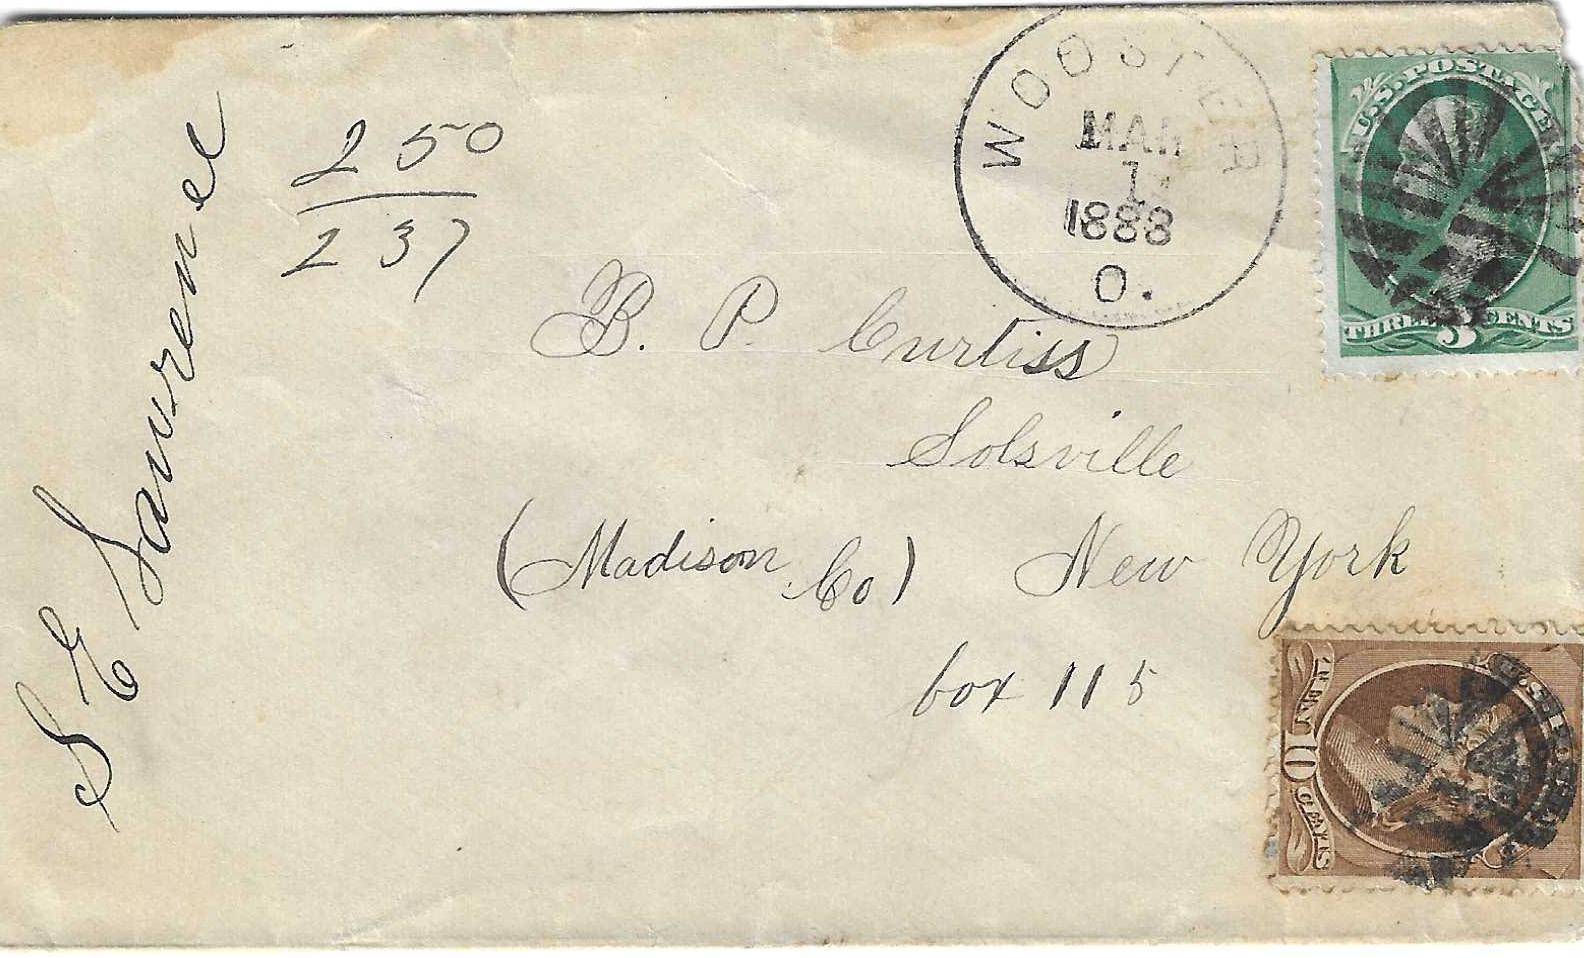 S E Lawrence
2 50
2 37
WOOSTER
MAR
1
1888
O.
U.S. POSTAGE
THREE 3 CENTS
B. P. Curtiss
Solsville
(Madison Co) New York
box 115
10 CENTS